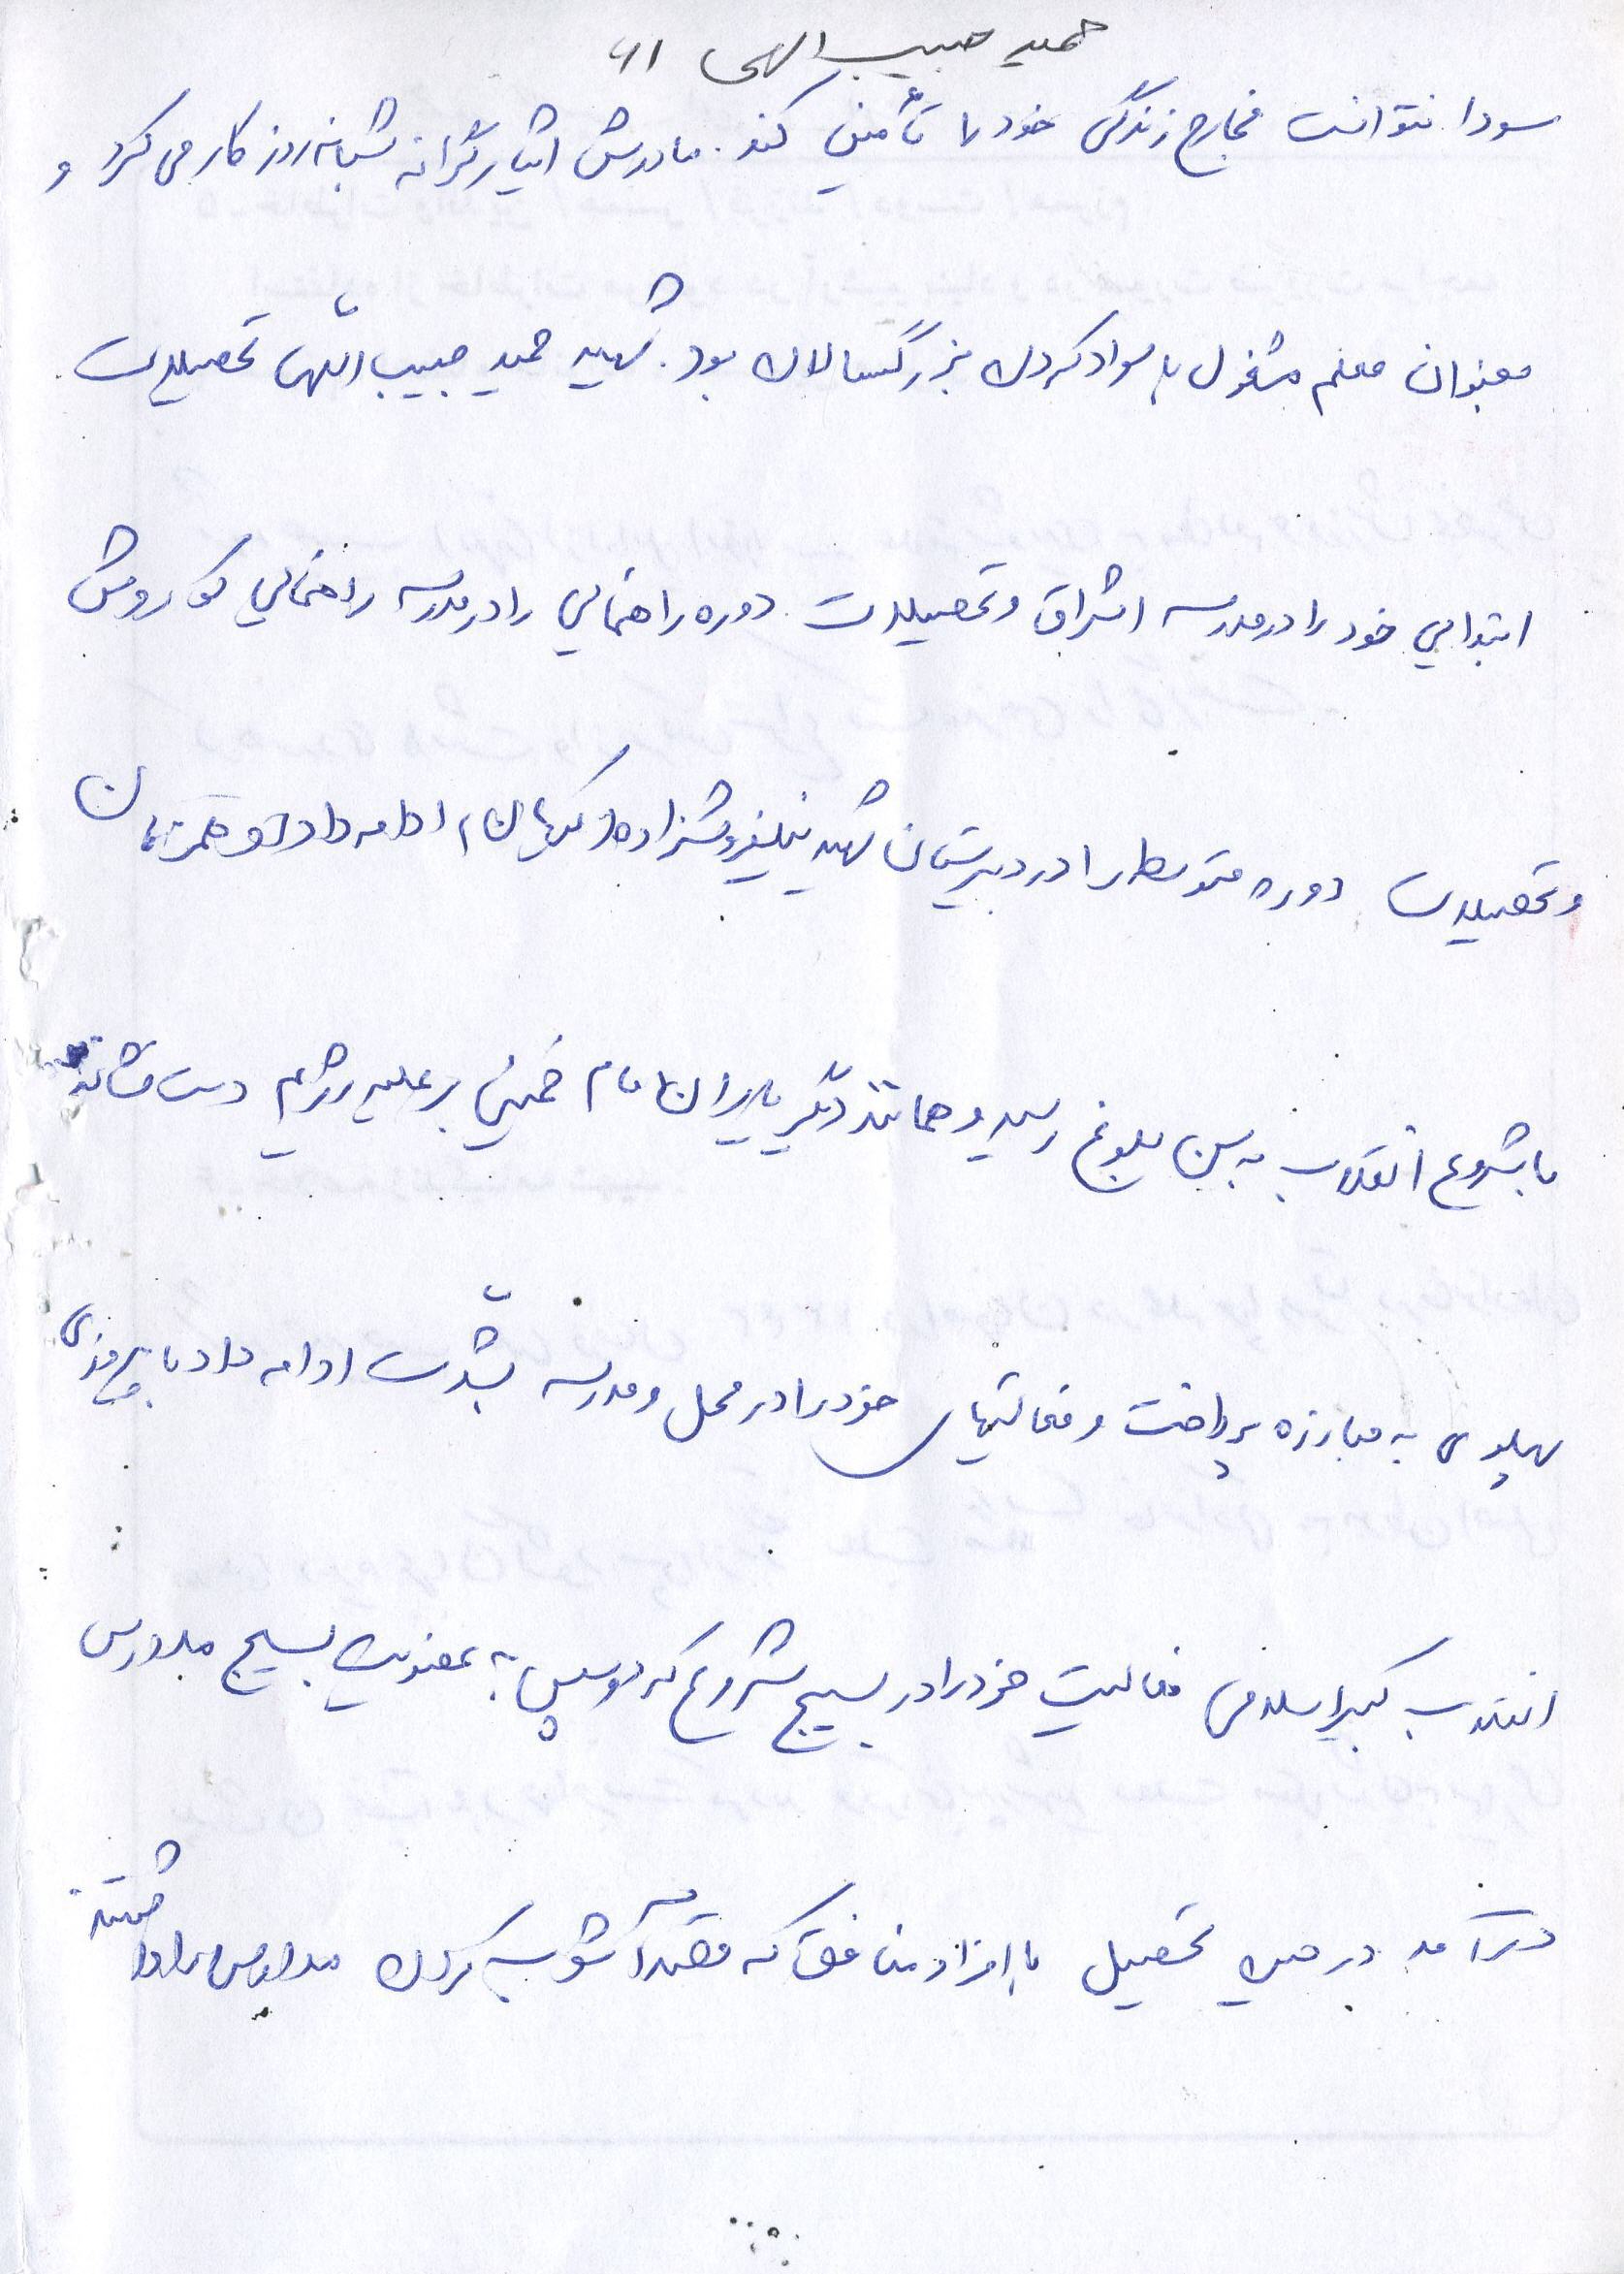 حمید حبیب اللهی ۶۱
سودا نتوانست مخارج زندگی خود را تأمین کند. مادرش ایثارگرانه شبانه روز کار می کرد و
بعنوان معلم مشغول با سواد کردن بزرگسالان بود. شهید حمید حبیب اللهی تحصیلات
ابتدایی خود را در مدرسه اشراق و تحصیلات دوره راهنمایی را در مدرسه راهنمایی کوروش
و تحصیلات دوره متوسطه را در دبیرستان شهید نیلفروشزاده ادامه داد و همزمان
با شروع انقلاب به سن بلوغ رسید و همانند دیگر یاران امام خمینی بر علیه رژیم دست نشانده
پهلوی به مبارزه پرداخت و فعالیتهای خود را در محل و مدرسه بشدت ادامه داد با پیروزی
انقلاب کبیر اسلامی فعالیت خود را در بسیج شروع کرد و سپس به عضویت بسیج مدارس
درآمد در حین تحصیل با افراد منافق که قصد آشوب کردن مدارس را داشتند